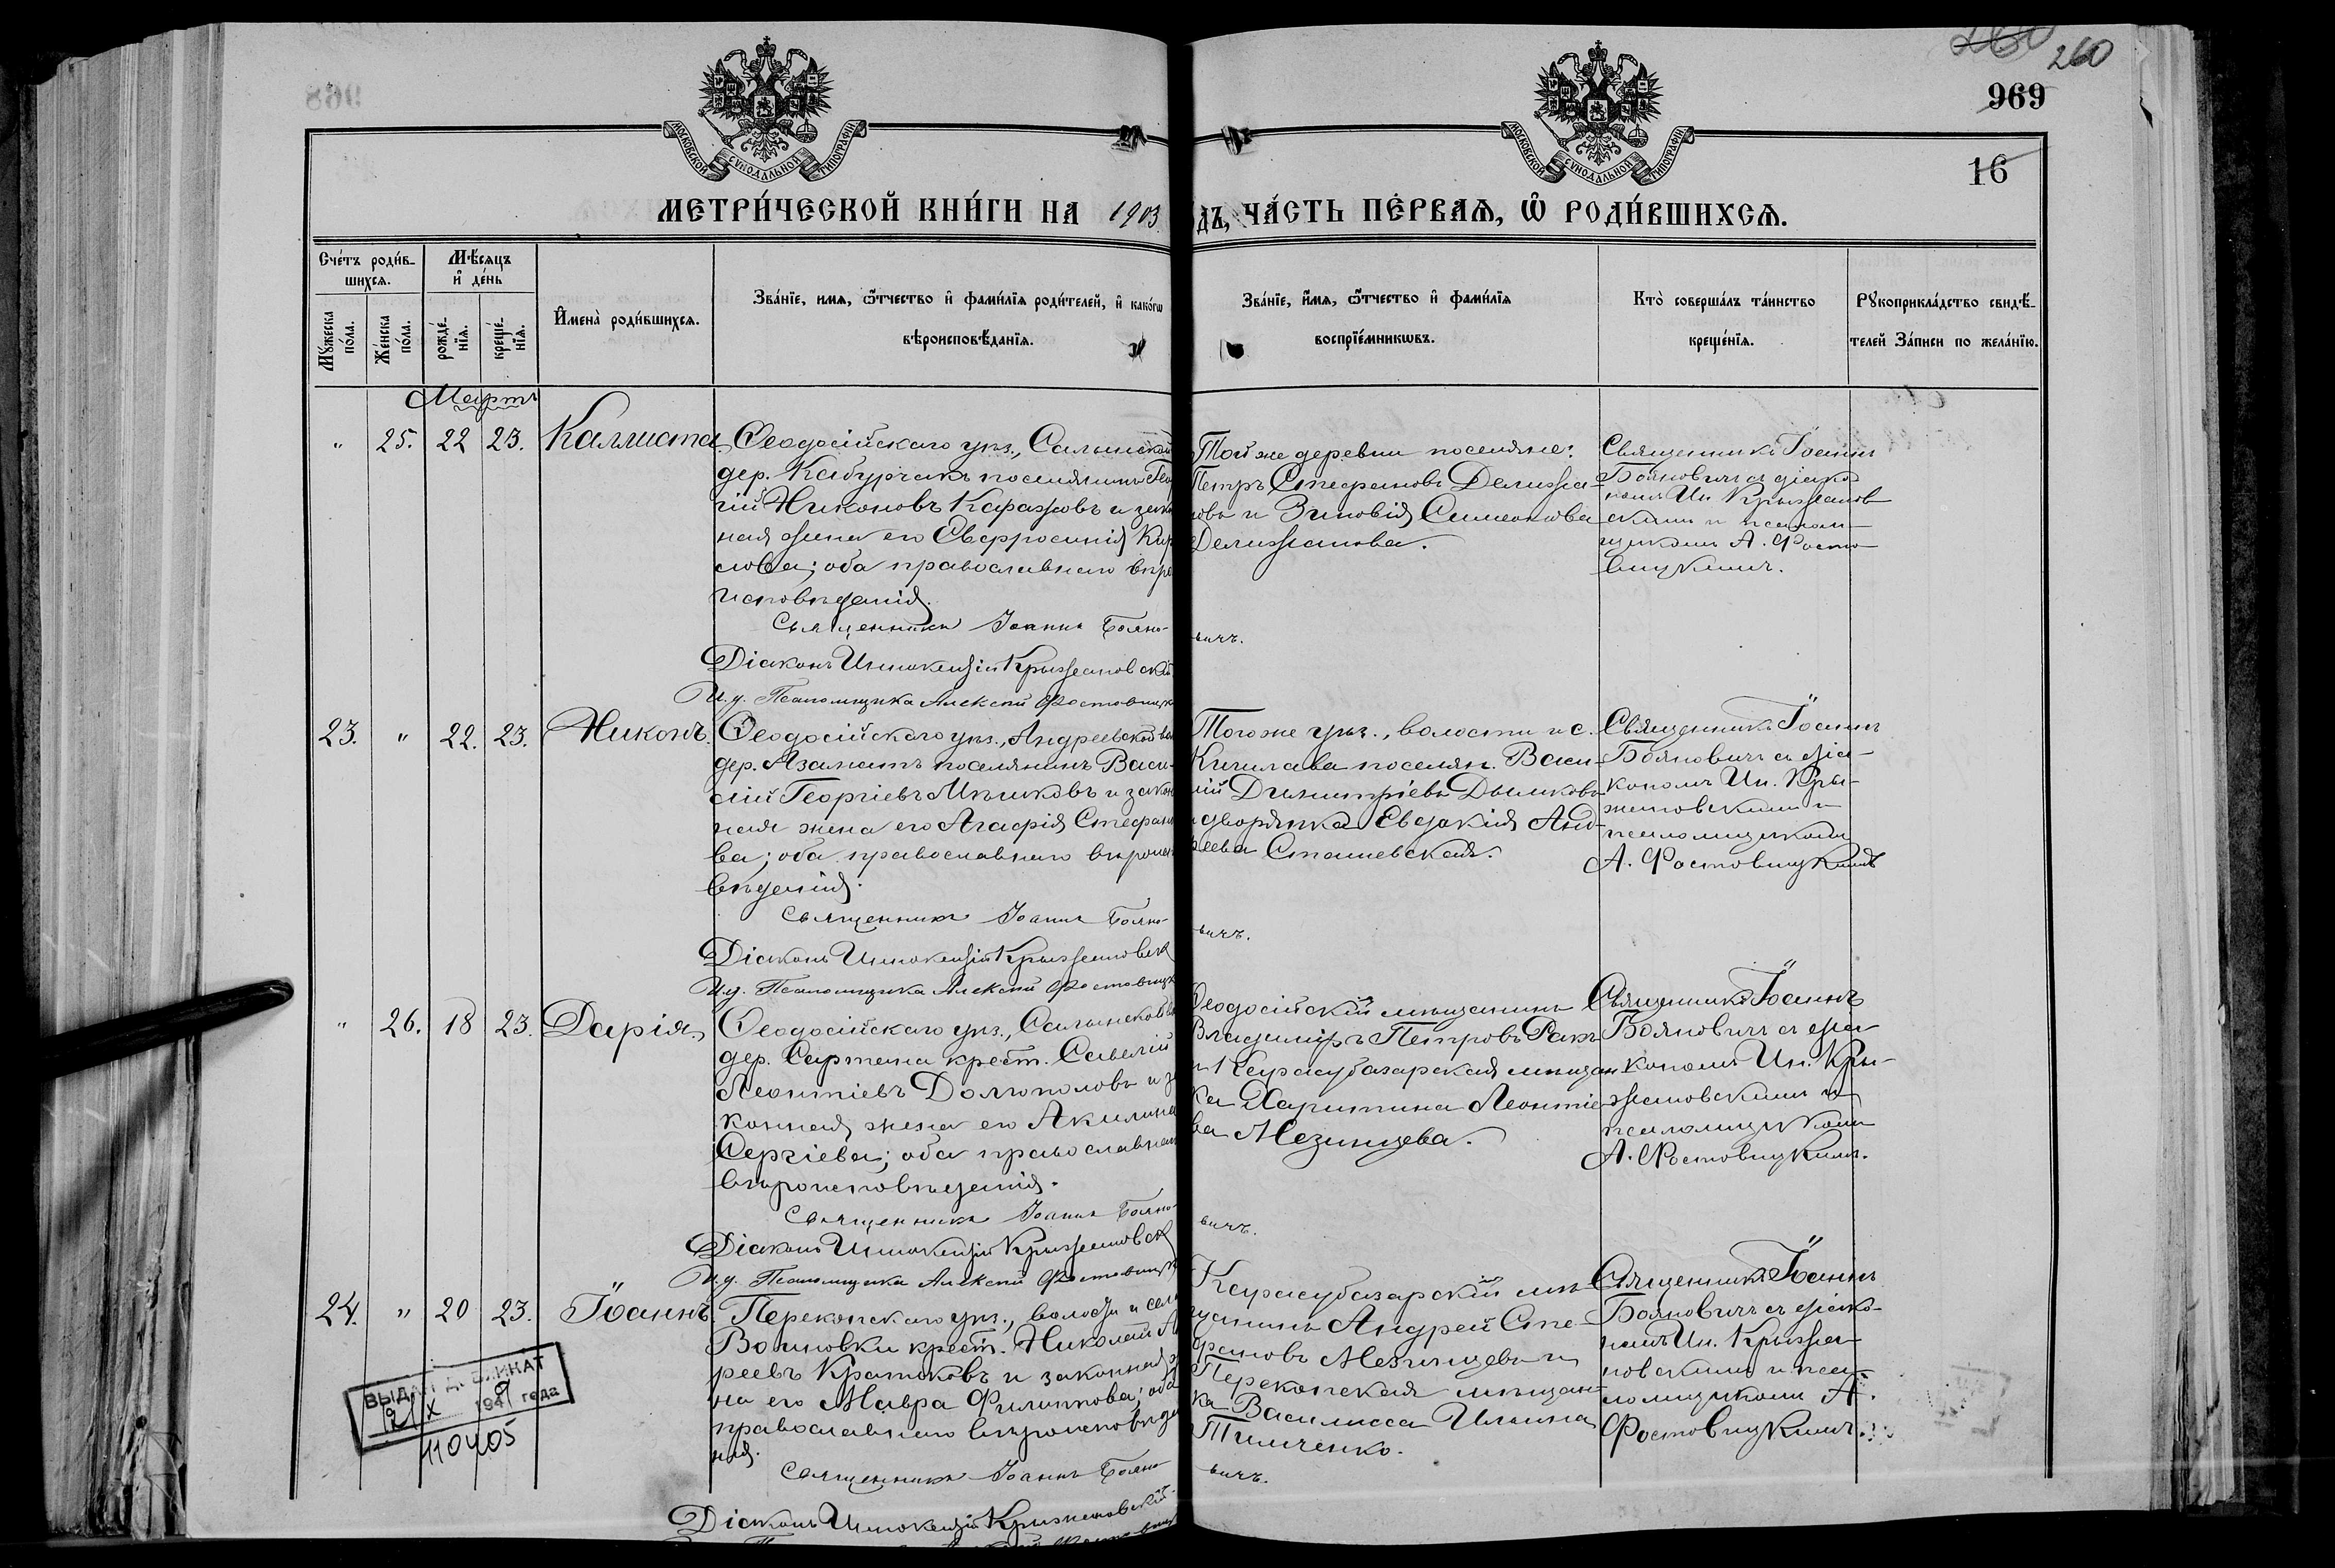 260
260
969
968
МОСКОВСКОЙ СѴНОДАЛЬНОЙ ТИПОГРАФІИ
МОСКОВСКОЙ СѴНОДАЛЬНОЙ ТИПОГРАФІИ
16
МЕТРИ́ЧЕСКОЙ КНИ́ГИ НА 1903
дъ, ЧА́СТЬ ПЕ́РВАѦ, Ѡ҆ РОДИ́ВШИХСѦ.
Сче́тъ роди́в-
шихсѧ.
Мꙋжеска по́ла.
Же́нска по́ла.
Мѣ́сѧцъ
и҆ де́нь
рожде́-
нїѧ.
креще́-
нїѧ.
И҆мена̀ роди́вшихсѧ.
Зва́нїе, имѧ, ѻ҆́тчество и҆ фами́лїѧ роди́телей, и҆ како́гѡ
вѣроисповѣ́данїѧ.
Зва́нїе, и҆́мѧ, ѻ҆́тчество и҆ фами́лїѧ
воспрїе́мникѡвъ.
Кто̀ соверша́лъ та́инство
креще́нїѧ.
Рꙋкоприкла́дство свидѣ́-
телей За́писи по жела́нїю.
Мартъ
" 25. 22 23. Каллиста
Ѳеодосійскаго уѣз., Салынской
дер. Кабурчакъ поселянинъ Геор
гій Никоновъ Каражовъ и закон
ная жена его Евфросинія Кар
слова; оба православнаго вѣро
исповѣданія.
Священникъ Іоаннъ Бояно-
Діаконъ Иннокентій Крыжановскій
И.д. Псаломщика Алексій Фостовицк
Той же деревни поселяне:
Петръ Стефановъ Делижа-
новъ и Зиновія Симеонова
Делижанова.
вичъ.
Священникъ Іоаннъ
Бояновичъ съ діако
номъ Ин. Крыжанов
скимъ и псалом-
щикомъ А. Фосто-
вицкимъ.
23. " 22. 23. Никонъ.
Ѳеодосійскаго уѣз., Андреевской вол
дер. Азаматъ поселянинъ Васи-
лій Георгіевъ Мѣшковъ и закон
ная жена его Агафія Стефано
ва; оба православнаго вѣроис
вѣданія.
Священникъ Іоаннъ Бояно-
Діаконъ Иннокентій Крыжановск
И.д. Псаломщика Алексій Фостовицк
Того же уѣз., волости и с.
поселян. Васи-
лій Димитріевъ Дымковъ
и дворянка Евдокія Анд-
реева Сташевская.
вичъ.
Священникъ Іоаннъ
Бояновичъ съ діа-
кономъ Ин. Кры-
жановскимъ и
псаломщикомъ
А. Фостовицкимъ
" 26. 18 23. Дарія.
Ѳеодосійскаго уѣз., Салынской во
дер. Сартана крест. Савелій
Леонтіевъ Долгополовъ и за
конная жена его Акилина
Сергіева; оба православнаго
вѣроисповѣданія.
Священникъ Іоаннъ Бояно-
Діаконъ Иннокентій Крыжановск
И.д. Псаломщика Алексій Фостовицк
Ѳеодосійскій мѣщанинъ
Владиміръ Петровъ Ракъ
и Карасубазарская мѣщан
ка Харитина Леонтіе
ва Мезинцева.
вичъ.
Священникъ Іоаннъ
Бояновичъ съ діа-
кономъ Ин. Кры-
жановскимъ и
псаломщикомъ
А. Фостовицкимъ.
24. " 20 23. Іоаннъ.
Перекопскаго уѣз., волости и села
Воиновки крест. Николай Анд
реевъ Кратковъ и законная же
на его Мавра Филиппова; оба
православнаго вѣроисповѣда
нія.
Священникъ Іоаннъ Бояно-
Діаконъ Иннокентій Крыжановскій
Карасубазарскій мѣ-
щанинъ Андрей Сте-
фановъ Мезинцевъ и
Перекопская мѣщан-
ка Василисса Ильина
Тимченко.
вичъ.
Священникъ Іоаннъ
Бояновичъ съ діако-
номъ Ин. Крыжа-
новскимъ и пса-
ломщикомъ А.
Фостовицкимъ.
ВЫДАН ДУБЛИКАТ
194 года
110405